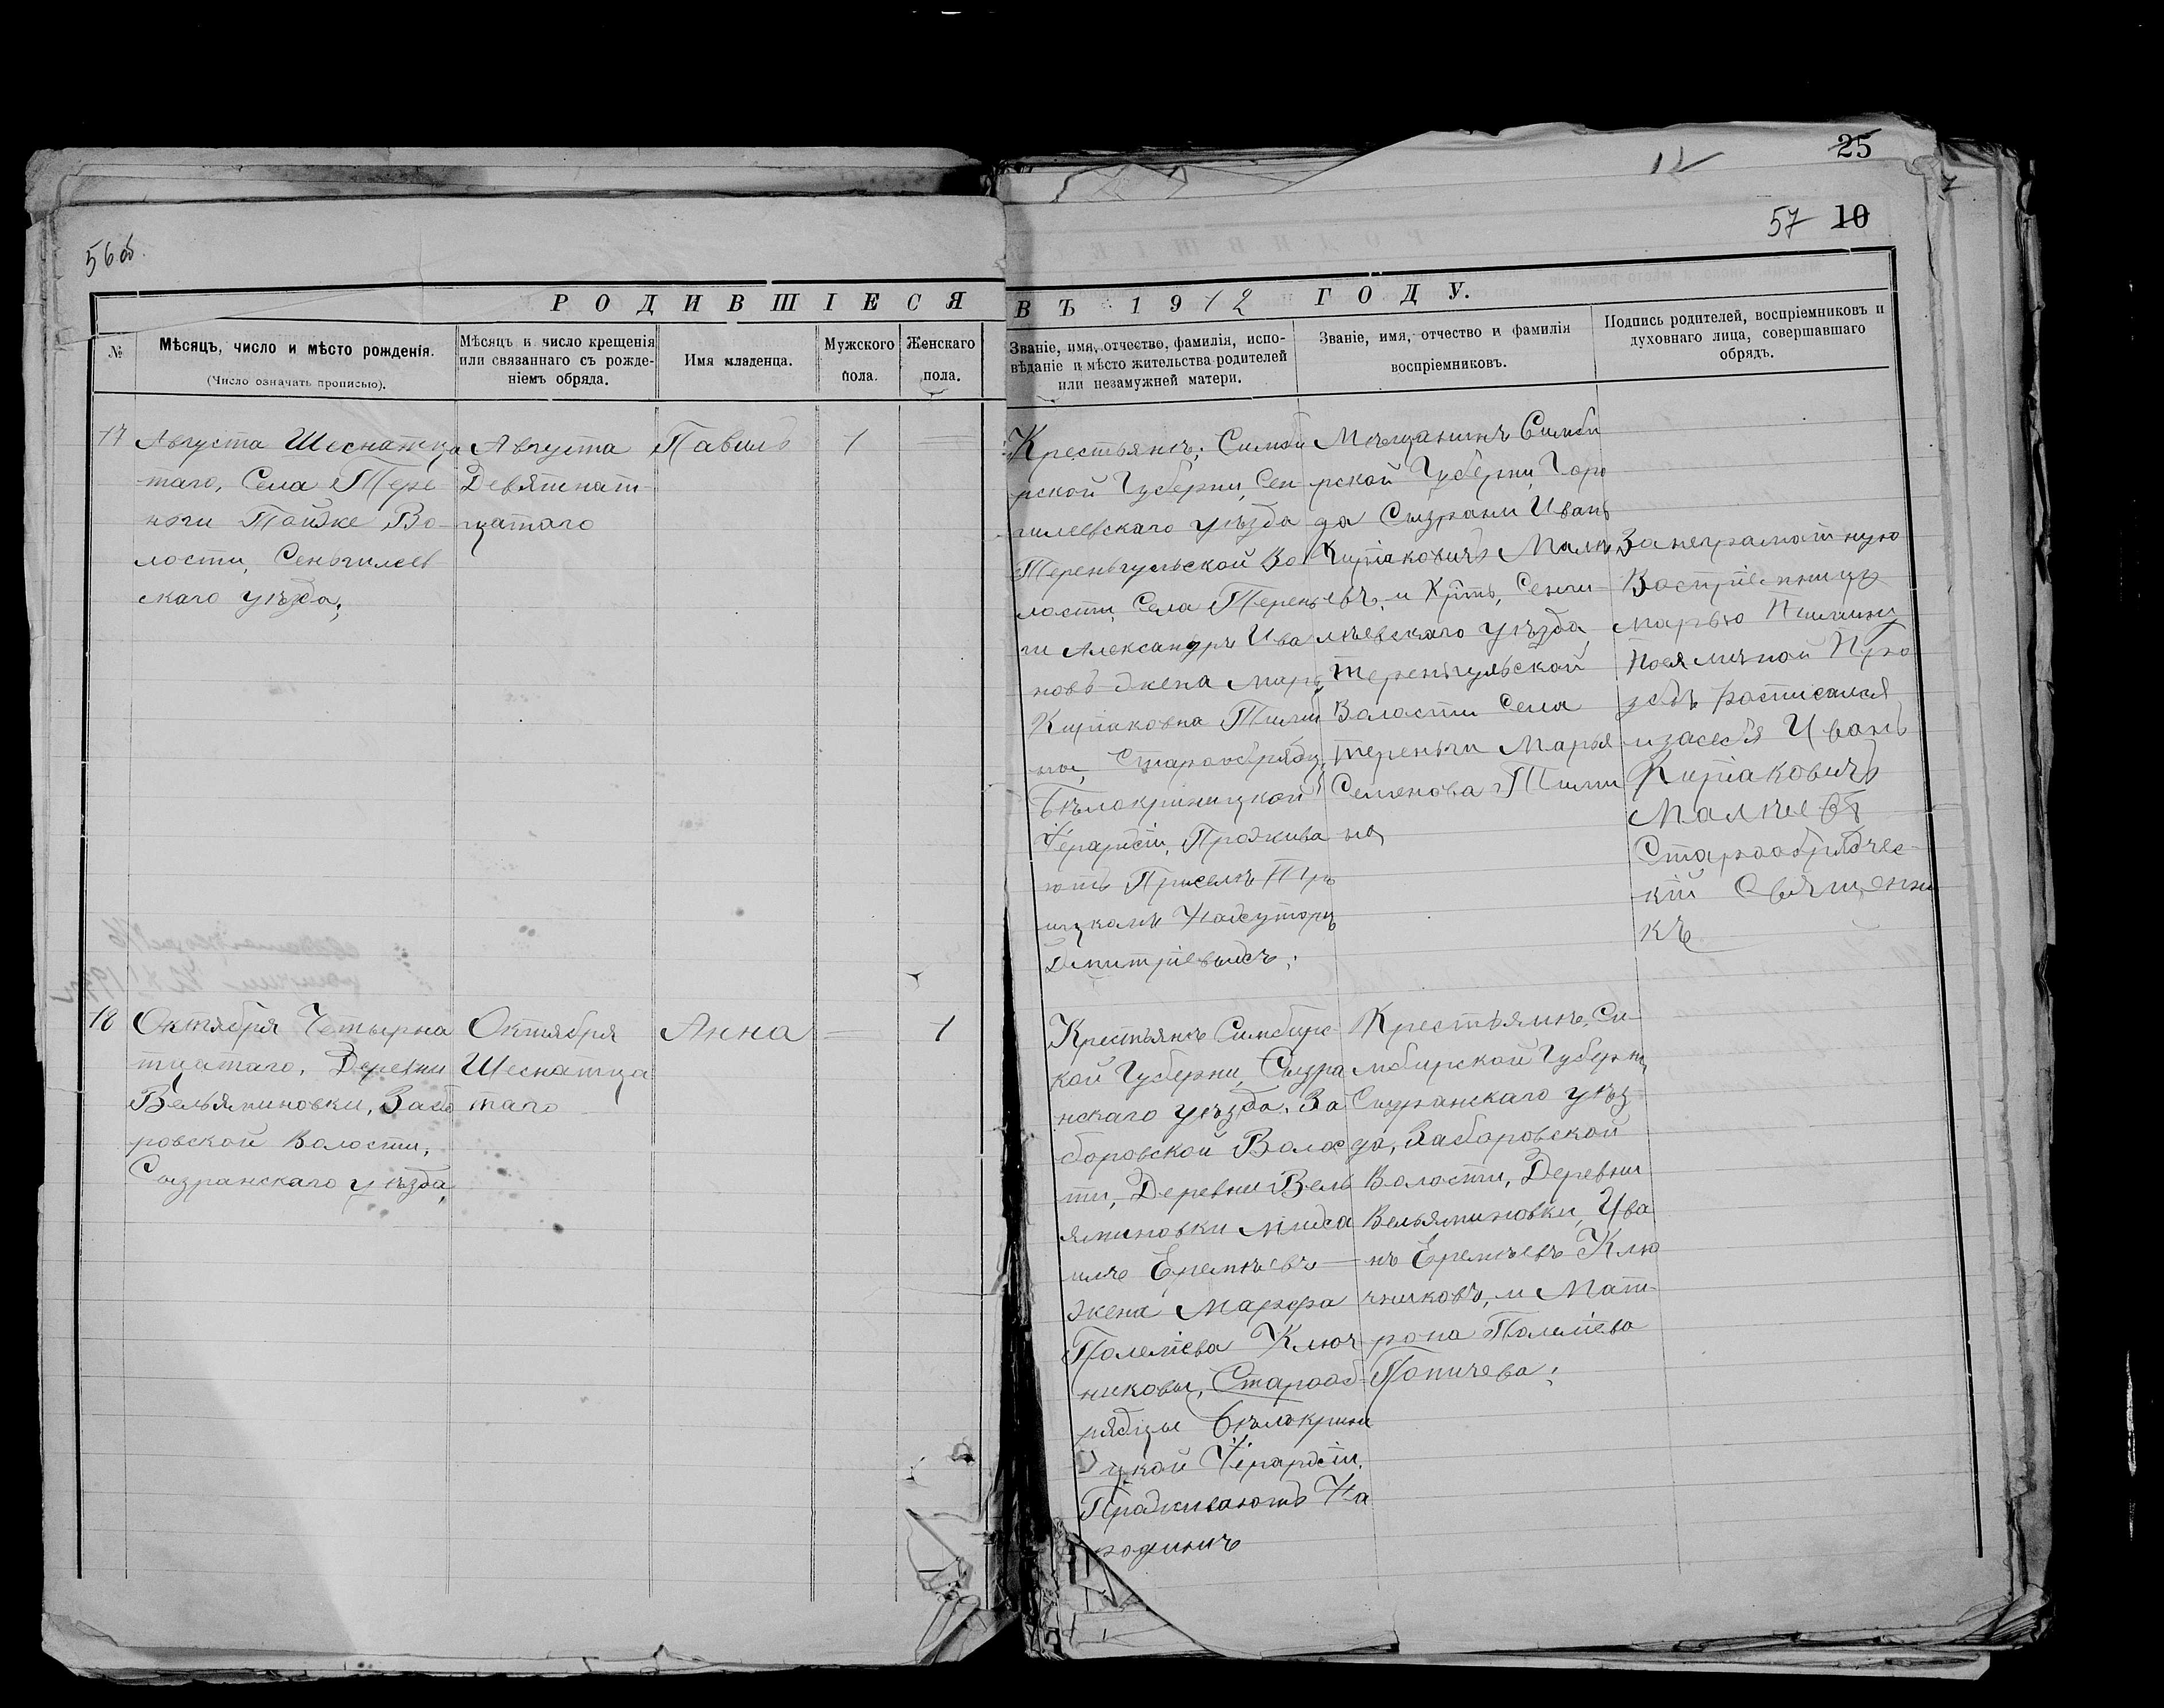 25
12
57 10
56 об.
РОДИВШІЕСЯ
ВЪ 1912 ГОДУ.
№
Мѣсяцъ, число и мѣсто рожденія.
(Число означать прописью).
Мѣсяцъ и число крещенія
или связаннаго съ рожде-
ніемъ обряда.
Имя младенца.
Мужского
пола.
Женскаго
пола.
Званіе, имя, отчество, фамилія, испо-
вѣданіе и мѣсто жительства родителей
или незамужней матери.
Званіе, имя, отчество и фамилія
воспріемниковъ.
Подпись родителей, воспріемниковъ и
духовнаго лица, совершавшаго
обрядъ.
17
Августа Шеснатца
таго, Села Тере
ньги Тойже Во-
лости, Сенгилеев
скаго уѣзда,
Августа
Девятнат-
цатаго
Павилъ
1
Крестьянъ; Симби
рской Губерни, Сен
гилеевскаго уѣзда
Тереньгульской Во
лости, Села Терень
ги Александръ Ива
новъ жена Марь
Киріаковна Тими
Старообрядц
Бѣлокриницкой
Іерархіи, Прожива
ютъ
Дмитріевыхъ;
Мѣщанинъ Симби
рской Губерни, Горо
да Сызрани Иванъ
Киріаковичъ Малѣ
евъ, и Крть, Сенги-
лѣевскаго уѣзда,
Тереньгульской
Волости Села
тереньги Марья
Семенова Тими
на
За неграмотную
Воспріемницу
марью
Пося личной Прз
збѣ росписался
изасебя Иванъ
Киріаковичъ
Малѣевъ
Старообрядчес-
кій Священни
къ
18
Октября Четырна
тцатаго, Деревни
Вельяминовки, Забо
ровской Волости,
Сызранскаго уѣзда,
Октября
Шеснатца
таго
Анна
1
Крестьянъ Симбирс
кой Губерни, Сызра
нскаго уѣзда, За
боровской Волос
ти, Деревни Вель
яминовки Миха
илъ Еремѣевъ
жена Марфа
Палеліева Ключ
никовы, Старооб
рядцы Бѣлокрини
цкой Іерархіи,
Праживаютъ На
родинѣ
Крестьянъ, Си-
мбирской Губерни,
Сызранскаго уѣз-
да, Заборовской
Волости, Деревни
Вельяминовки, Ива
нъ Еремѣевъ Клю
чниковъ, и Мат-
рона Палеліева
Попичева;